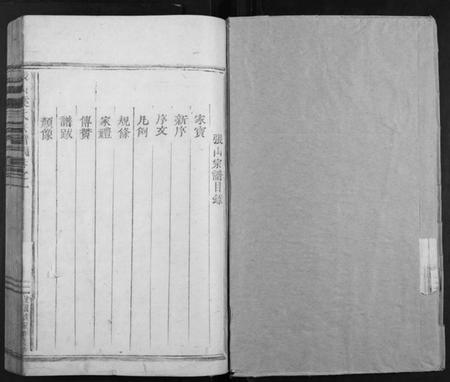 張山宗譜目錄
家寶
新序
序文
凡例
規條
家禮
傳贊
譜跋
顏像